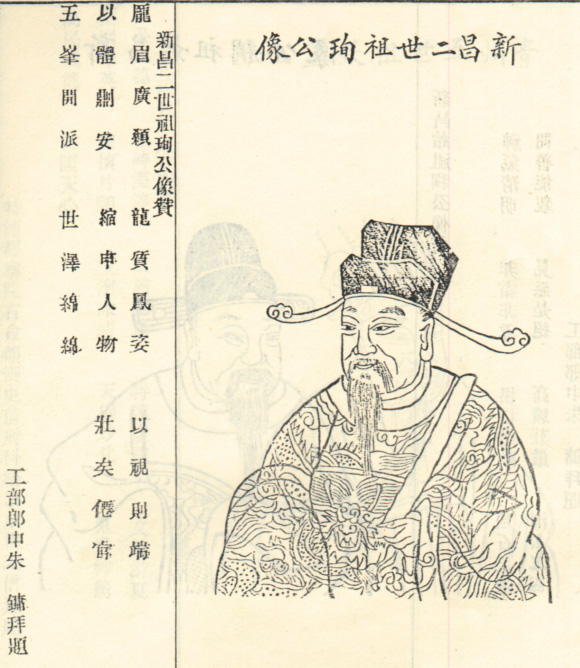 新昌二世祖珣公像
新昌二世祖珣公像贊
龐眉廣顙 龍質鳳姿 以視則端
以體則安 縮申人物 壯矣僊官
五峯開派 世澤綿綿
工部郎中朱 鏞拜題